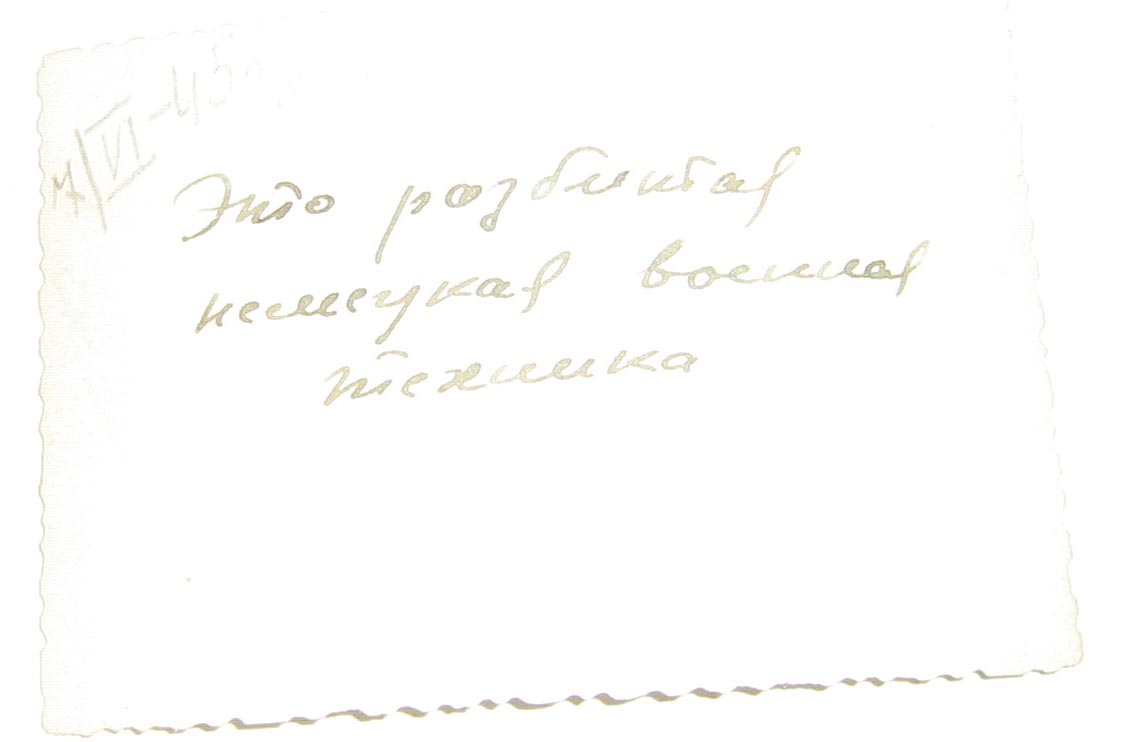 Это розбитая
немецкая военная
техника